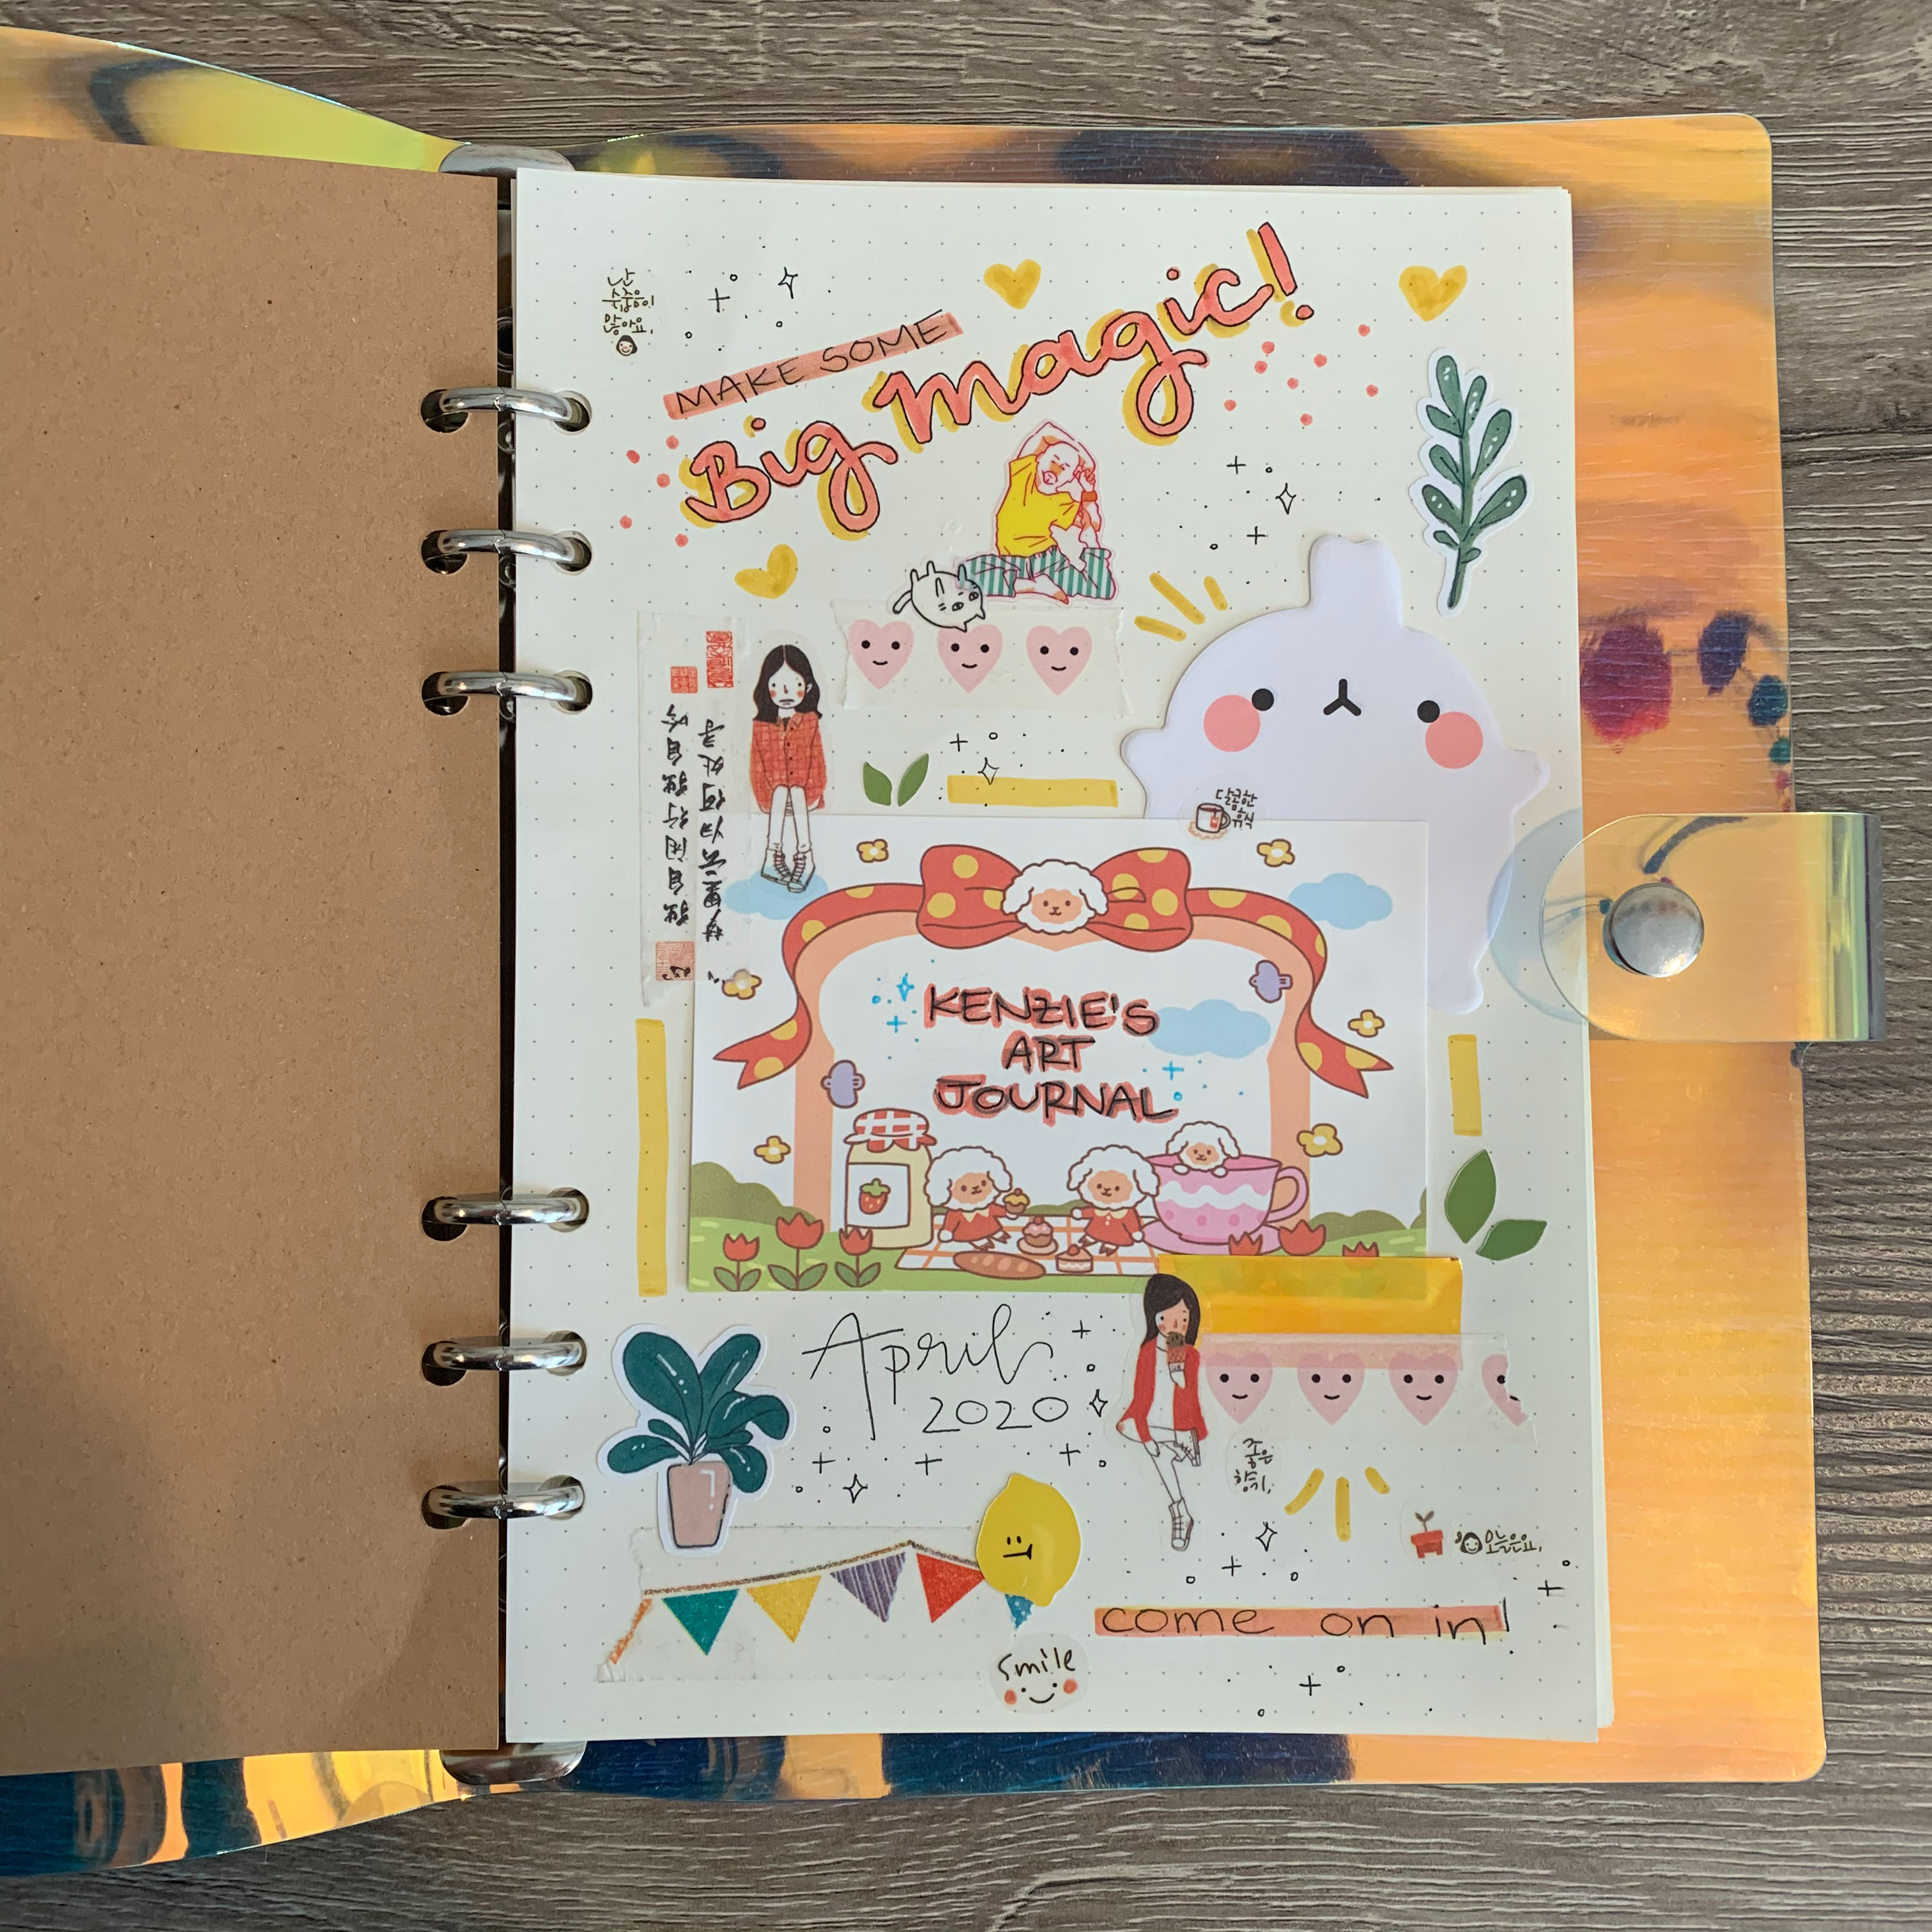 난
수줍음이
많아요.
MAKE SOME
Big magic!
梦里云归何处寻
独自闲行独自吟
달콤한
휴식
KENZIE'S
ART
JOURNAL
April
2020
좋은
향기,
오늘은요,
come on in!
smile